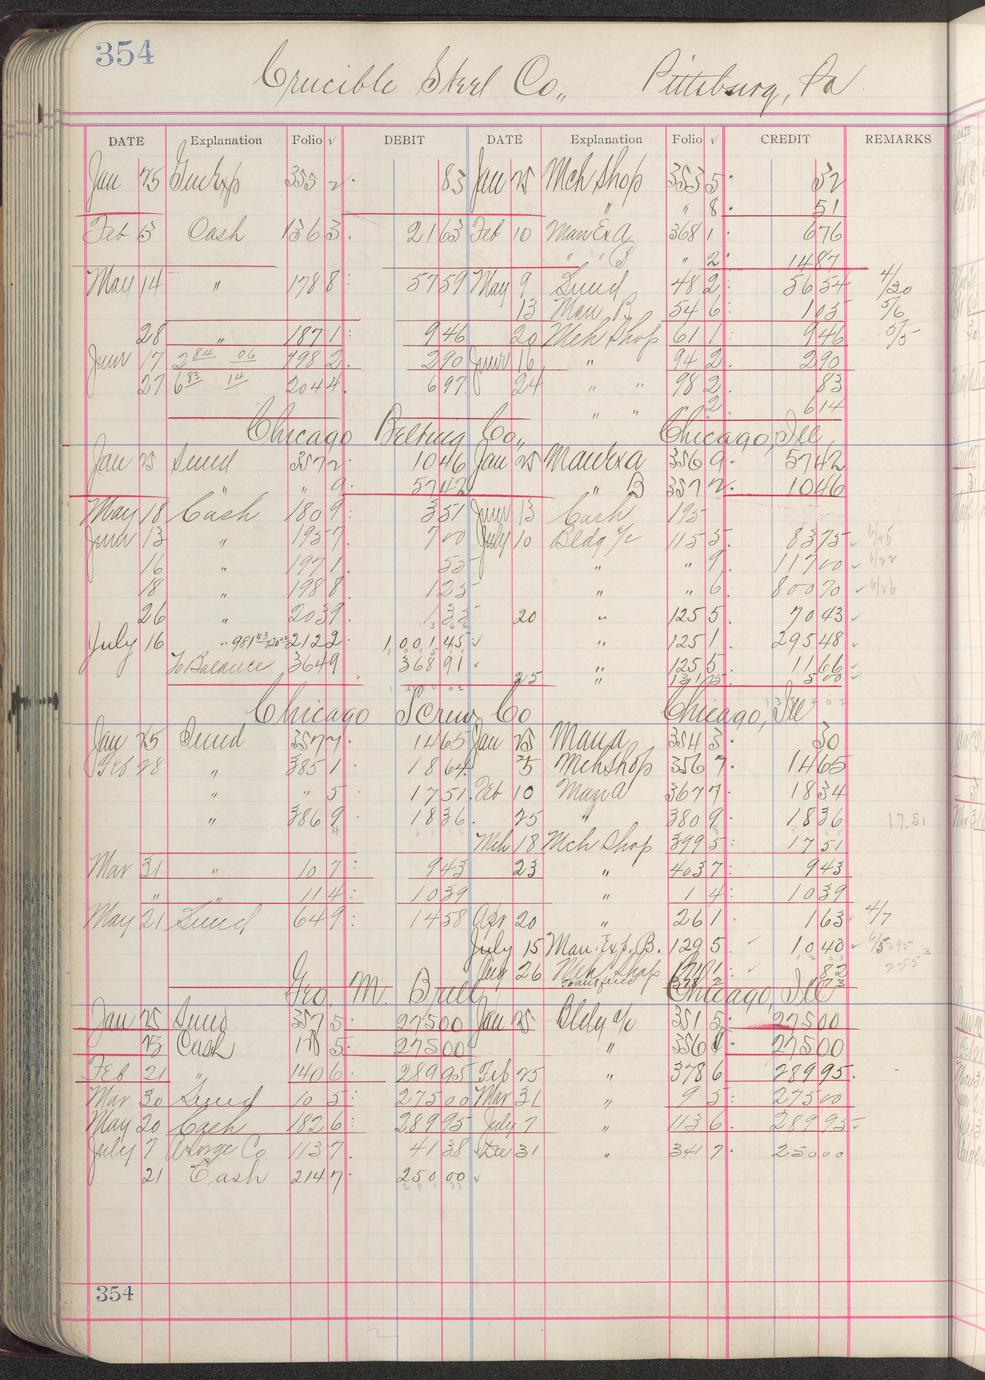 354
Crucible Steel Co., Pittsburg, Pa
DATE Explanation Folio √ DEBIT DATE Explanation Folio √ CREDIT REMARKS
Jan 25 Gen Exp 355 2 83 Jan 25 Mch Shop 353 5 32
" " 8 51
Feb 13 Cash 136 3 21 63 Feb 10 Man Ex A 368 1 6 76
" " B " 2 14 87
May 14 " 178 8 57 59 May 9 Sund 48 2 56 54 4/30
13 Man B 54 6 1 05 5/6
28 " 187 1 9 46 20 Mch Shop 61 1 9 46 5/5
June 17 2 84 06 198 2 2 90 June 16 " 94 2 2 90
27 6 83 14 204 4 6 97 24 " " 98 2 83
" " 2 6 14
Chicago Belting Co., Chicago, Ill
Jan 25 Sund 357 2 10 46 Jan 25 Man Ex A 356 9 57 42
" " 9 57 42 " B 357 2 10 46
May 18 Cash 180 9 3 51 June 13 Cash 195
June 13 " 195 7 7 00 July 10 Bldg a/c 115 5 83 75
16 " 197 1 55 " " 9 117 00 6/22
18 " 198 8 1 25 " " 6 800 70 6/26
26 " 203 9 1 35 20 " 125 5 70 43
July 16 " 981 43 212 2 1,001 45 " 125 1 295 48
To Balance 364 9 368 91 " 125 5 11 66
25 " 131 5 5 00
Chicago Screw Co Chicago, Ill
Jan 25 Sund 357 7 14 65 Jan 25 Man A 354 3 30
Feb 28 " 385 1 18 64 25 Mch Shop 356 7 14 65
" " " 5 17 51 Feb 10 Man A 367 7 18 34
" 386 9 18 36 25 " 380 9 18 36 17.51
Mch 18 Mch Shop 399 5 17 51
Mar 31 " 10 7 9 43 23 " 403 7 9 43
" " 11 4 10 39 " 1 4 10 39
May 21 Sund 64 9 14 58 Apr 20 " 26 1 1 63 4/7
July 15 Man. Exp. B. 129 5 10 40 6/5
Aug 26 Mch Shop 171 1 82
Transfered
Geo. M. Brill Chicago, Ill
Jan 25 Sund 357 5 275 00 Jan 25 Bldg a/c 351 5 275 00
25 Cash 178 5 275 00 " 356 275 00
Feb 21 " 140 6 289 95 Feb 25 " 378 6 289 95
Mar 30 Sund 10 5 275 00 Mar 31 " 9 5 275 00
May 20 Cash 182 6 289 95 July 7 " 113 6 289 95
July 7 Co 113 7 41 38 Dec 31 " 341 7 250 00
21 Cash 214 7 250 00
354